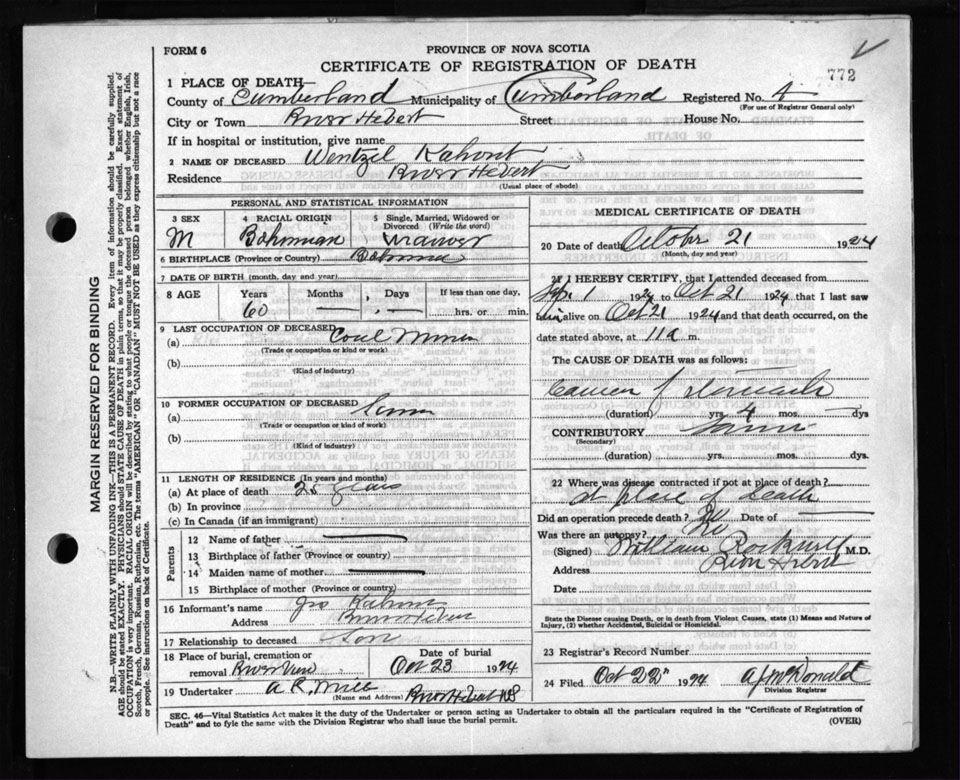 FORM 6
PROVINCE OF NOVA SCOTIA
CERTIFICATE OF REGISTRATION OF DEATH
772
1 PLACE OF DEATH—
County of Cumberland Municipality of Cumberland Registered No. 4
(For use of Registrar General only)
City or Town River Hebert Street House No.
If in hospital or institution, give name
2 NAME OF DECEASED Wentzel Kahont
Residence River Hebert
(Usual place of abode)
PERSONAL AND STATISTICAL INFORMATION
3 SEX 4 RACIAL ORIGIN 5 Single, Married, Widowed or Divorced (Write the word)
M Bohmian
6 BIRTHPLACE (Province or Country)
7 DATE OF BIRTH (month, day and year)
8 AGE Years Months Days If less than one day,
60 — — hrs. or min.
9 LAST OCCUPATION OF DECEASED
(a) Coal Miner
(Trade or occupation or kind or work)
(b)
(Kind of industry)
10 FORMER OCCUPATION OF DECEASED
(a)
(Trade or occupation or kind of work)
(b)
(Kind of industry)
11 LENGTH OF RESIDENCE (In years and months)
(a) At place of death years
(b) In province
(c) In Canada (if an immigrant)
Parents
12 Name of father —
13 Birthplace of father (Province or country)
14 Maiden name of mother —
15 Birthplace of mother (Province or country)
16 Informant's name
Address River Hebert
17 Relationship to deceased Son
18 Place of burial, cremation or removal Date of burial
Oct 23 1924
19 Undertaker A. R. River Hebert NS
(Name and Address)
MEDICAL CERTIFICATE OF DEATH
20 Date of death October 21 1924
(Month, day and year)
21 I HEREBY CERTIFY, that I attended deceased from
Sep. 1 1924 to Oct 21 1924 that I last saw
him alive on Oct 21 1924 and that death occurred, on
date stated above, at 11 a m.
The CAUSE OF DEATH was as follows:
Cancer of Stomach
(duration) yrs. 4 mos. — dys
CONTRIBUTORY
(Secondary)
(duration) yrs. mos. dys.
22 Where was disease contracted if not at place of death?
at place of death
Did an operation precede death? No Date of —
Was there an autopsy? No
(Signed) William Rockwell M.D.
Address River Hebert
Date
State the Disease causing Death, or in death from Violent Causes, state (1) Means and Nature of
Injury, (2) whether Accidental, Suicidal or Homicidal.
23 Registrar's Record Number
24 Filed Oct 22 1924 A J McDonald
Division Registrar
SEC. 46—Vital Statistics Act makes it the duty of the Undertaker or person acting as Undertaker to obtain all the particulars required in the "Certificate of Registration of
Death" and to fyle the same with the Division Registrar who shall issue the burial permit.
(OVER)
MARGIN RESERVED FOR BINDING
N.B.—WRITE PLAINLY WITH UNFADING INK—THIS IS A PERMANENT RECORD. Every item of information should be carefully supplied.
AGE should be stated EXACTLY. PHYSICIANS should STATE CAUSE OF DEATH in plain terms, so that it may be properly classified. Exact statement of
OCCUPATION is very important. RACIAL ORIGIN will be described by stating to what people or tongue the deceased person belonged whether English, Irish,
Scotch, French, German, Russian, Ruthenian, etc. The terms "AMERICAN" OR "CANADIAN" MUST NOT BE USED as they express citizenship but not a race
or people. See instructions on back of Certificate.